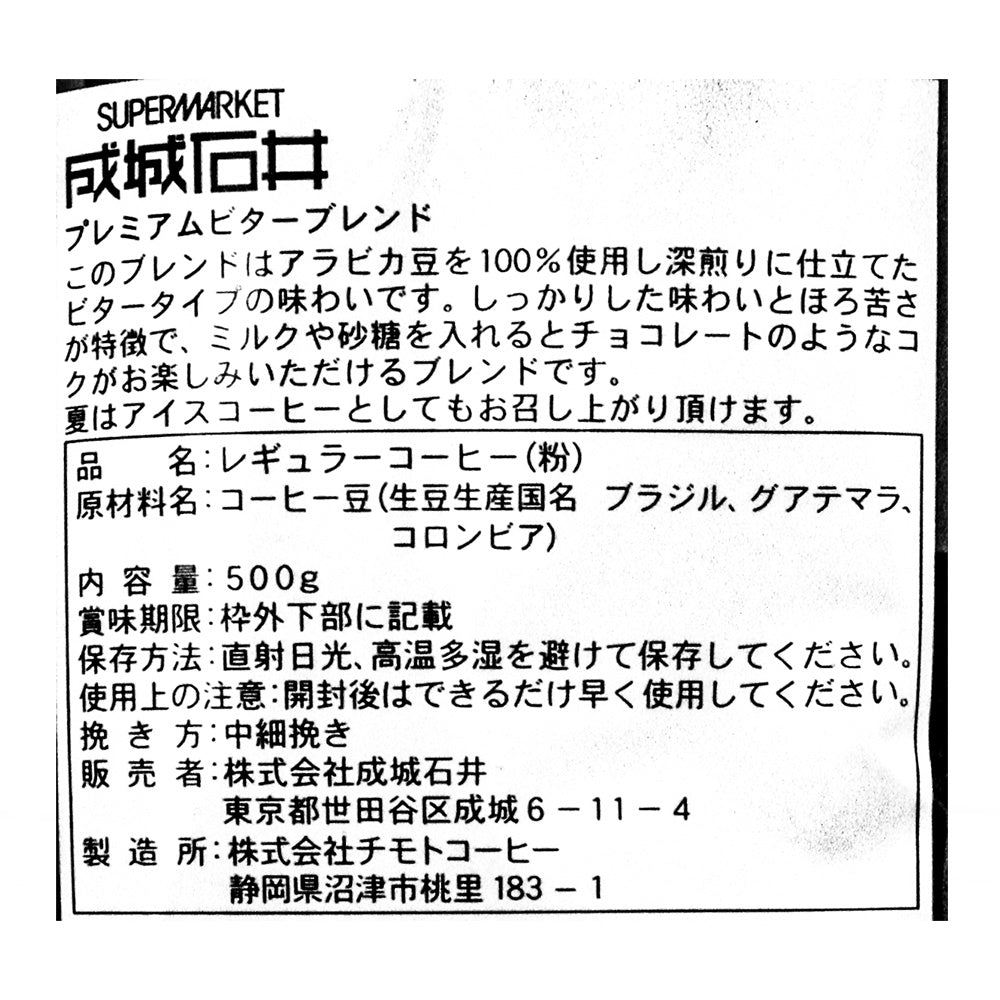 SUPERMARKET
成城石井
プレミアムビターブレンド
このブレンドはアラビカ豆を100%使用し深煎りに仕立てた
ビタータイプの味わいです。しっかりした味わいとほろ苦さ
が特徴で、ミルクや砂糖を入れるとチョコレートのようなコ
クがお楽しみいただけるブレンドです。
夏はアイスコーヒーとしてもお召し上がり頂けます。
品 名:レギュラーコーヒー(粉)
原材料名:コーヒー豆(生豆生産国名 ブラジル、グアテマラ、
コロンビア)
内容量:500g
賞味期限:枠外下部に記載
保存方法:直射日光、高温多湿を避けて保存してください。
使用上の注意:開封後はできるだけ早く使用してください。
挽き方:中細挽き
販売者:株式会社成城石井
東京都世田谷区成城6-11-4
製造所:株式会社チモトコーヒー
静岡県沼津市桃里183-1